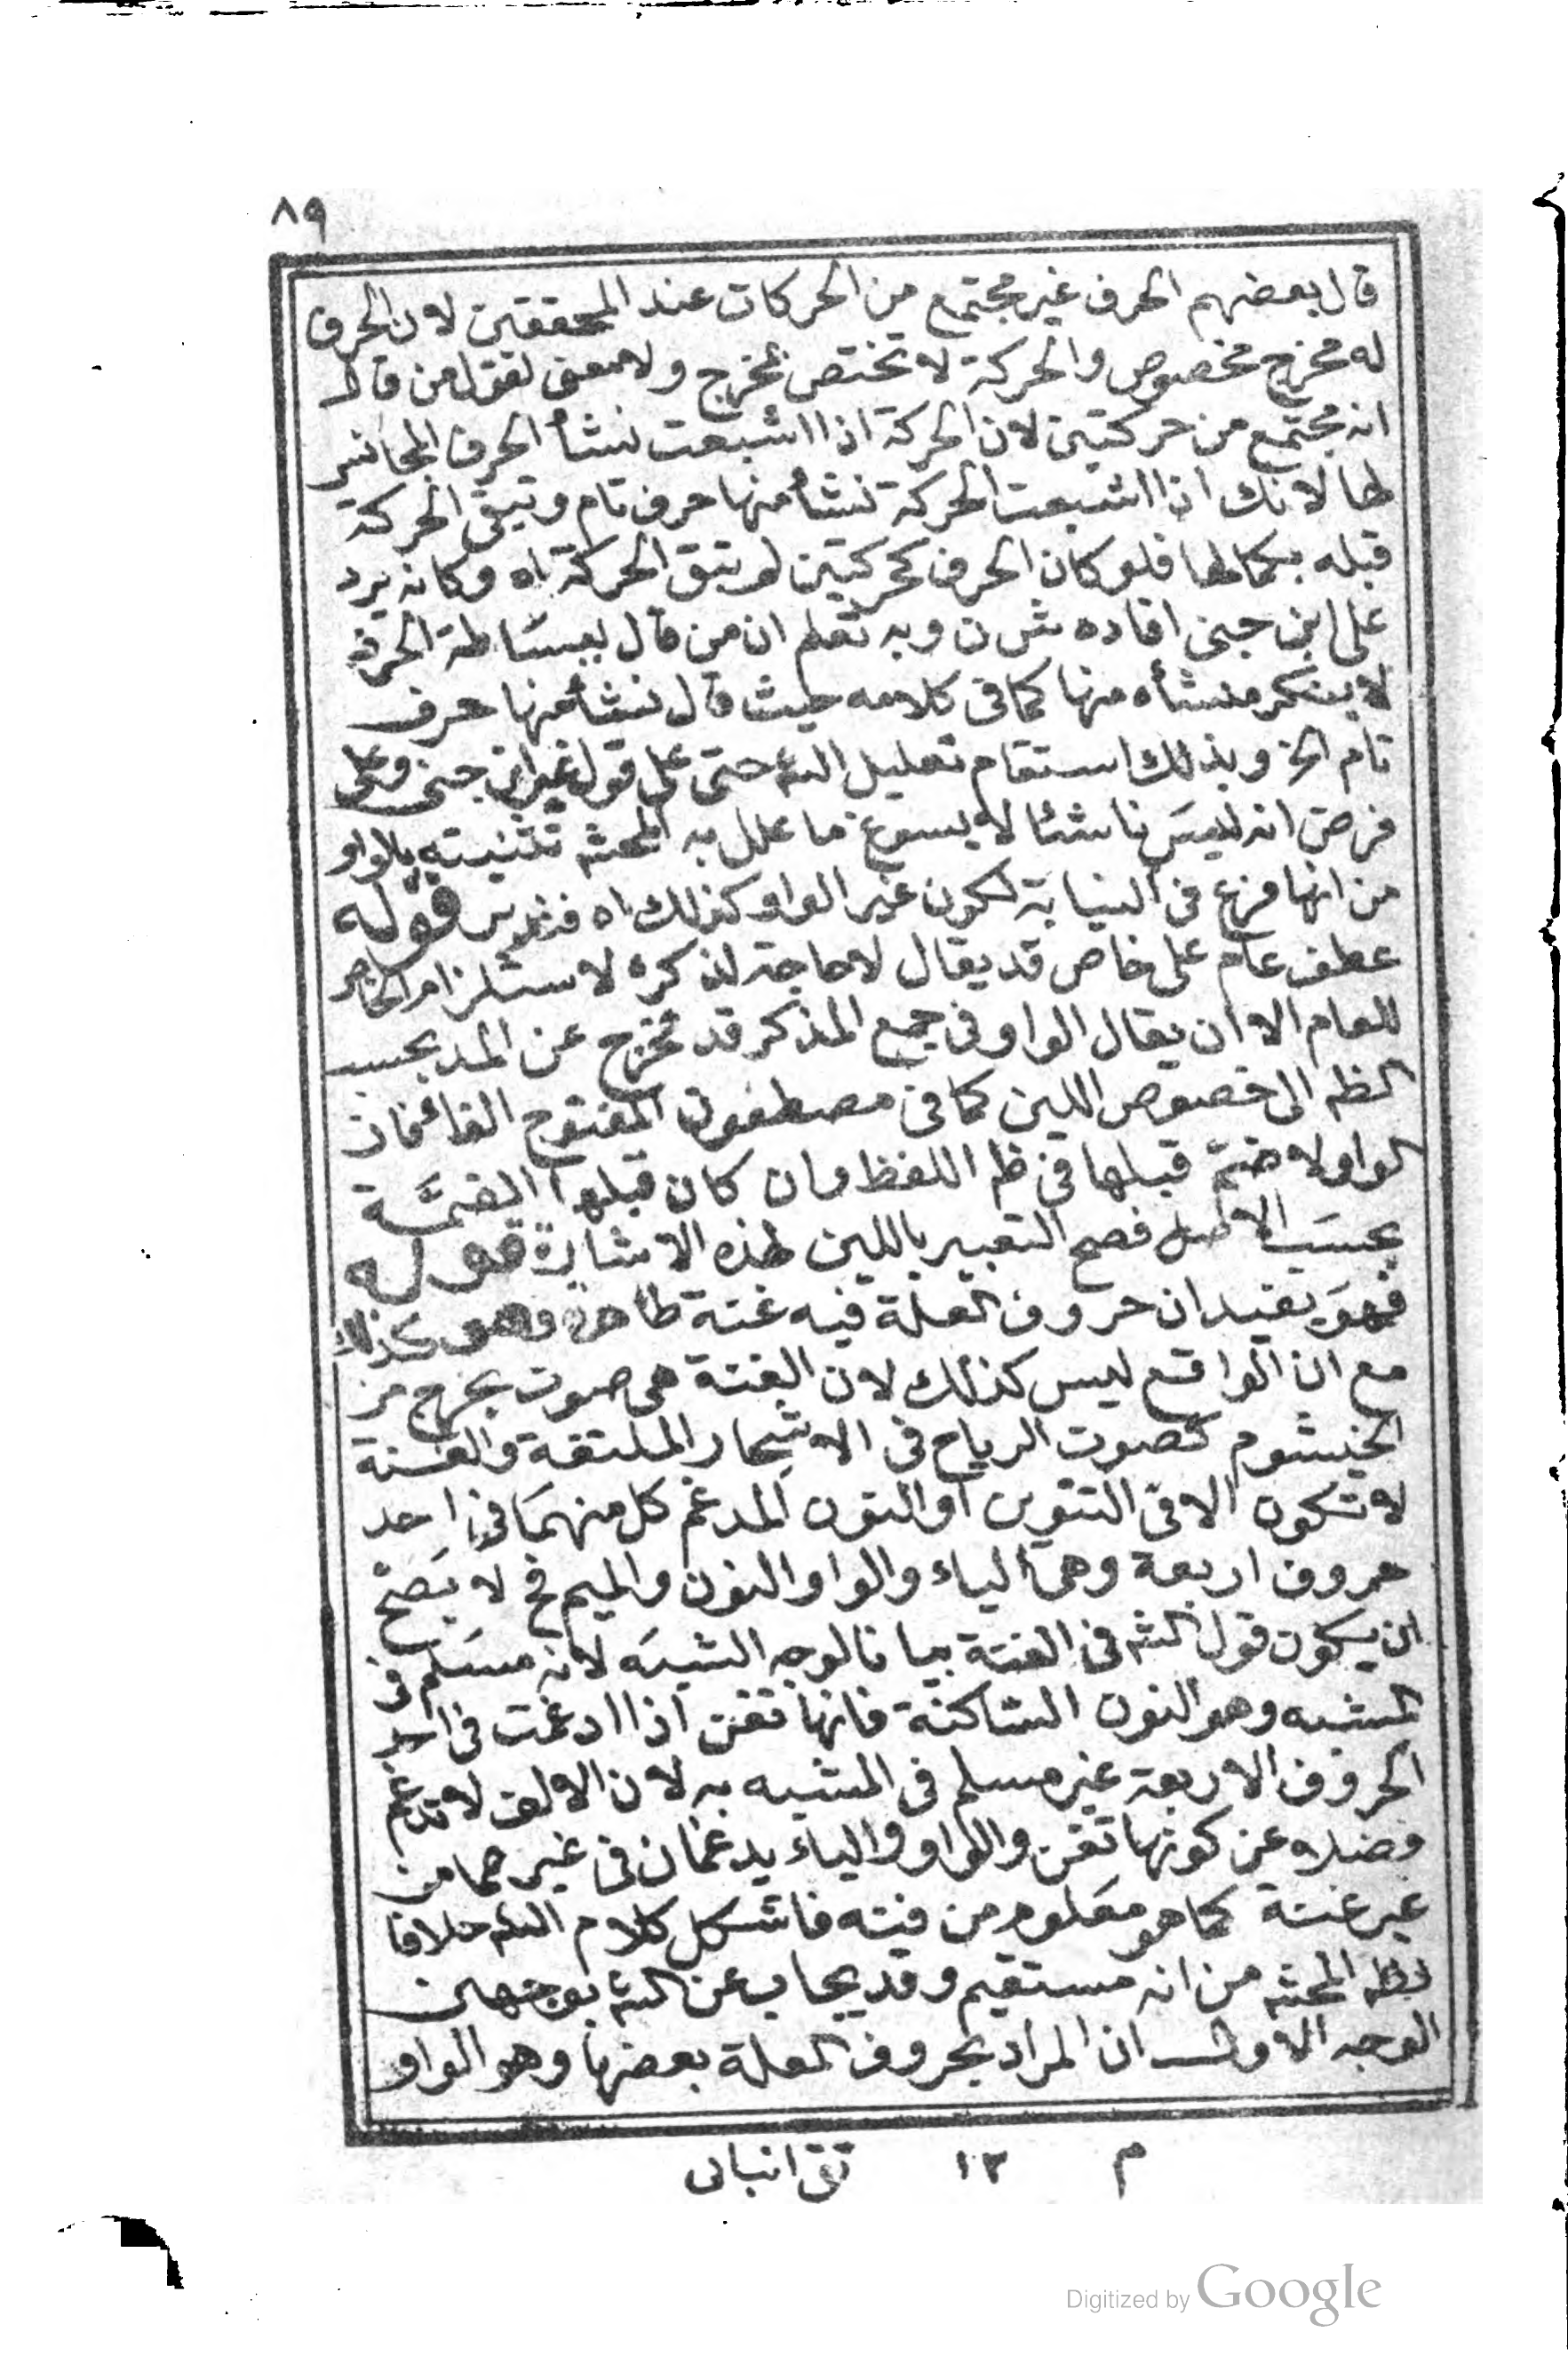 ٨٩
قال بعضهم الحرف غير مجتمع من الحركات عند المحققين لان الحرف
له مخرج مخصوص والحركة لا تختص بمخرج ولا معنى لقول من قال
انه مجتمع من حركتين لان الحركة اذا اشبعت نشأ الحرف المجانس
لها لانك اذا اشبعت الحركة نشأ منها حرف تام وتبقى الحركة
قبله بكمالها فلو كان الحرف كحركتين لم تبق الحركة اه وكانه يرد
على ابن جنى افاده ش ن وبه تعلم ان من قال ببساطة الحرف
لا ينكر منشأه منها كما فى كلامه حيث قال نشأ منها حرف
تام الخ وبذلك استقام تعليل الشه حتى على قول غير ابن جنى وعلى
فرض انه ليس ناشئا لا يسوغ ما علل به المحشه تثنيته بالواو
من انها فرع فى النيابة لكون غير الواو كذلك اه فتدبر قوله
عطف عام على خاص قد يقال لا حاجة لذكره لاستلزام الخاص
للعام الا ان يقال الواو فى جمع المذكر قد تخرج عن المد بحسب
الظه الى خصوص اللين كما فى مصطفون المفتوح الفا فان
الواو لا ضمّ قبلها فى ظه اللفظ وان كان قبلها الضمَّة
بحسَب الاصل فصح التعبير باللين لهذه الاشارة قوله
فهوَ يفيد ان حروف العلة فيه غنة ظاهره وهو كذلك
مع ان الواقع ليس كذلك لان الغنة هى صوت يخرج من
الخيشوم كصوت الرياح فى الاشجار الملتفة والغنة
لا تكون الا فى التنوين او النون المدغم كل منهما فى احد
حروف اربعة وهى الياء والواو والنون والميم فح لا يصَح
ان يكون قول الشه فى الغنة بيانا لوجه الشبَه لانه مسَلم فى
المشبه وهو النون الساكنة فانها تغن اذا ادغمت فى احد
الحروف الاربعة غير مسلم فى المشبه به لان الالف لا تدغم
فضلا عن كونها تغن والواو والياء يدغمان فى غيرهما من
غير غنة كما هو معَلوم من فنه فاشكل كلام الشه خلافا
لظه المحشه من انه مستقيم وقد يجاب عن الشه بوجهين
الوجه الاول ان المراد بحروف العلة بعضها وهو الواو
م ١٢ تق انبابى
Digitized by Google